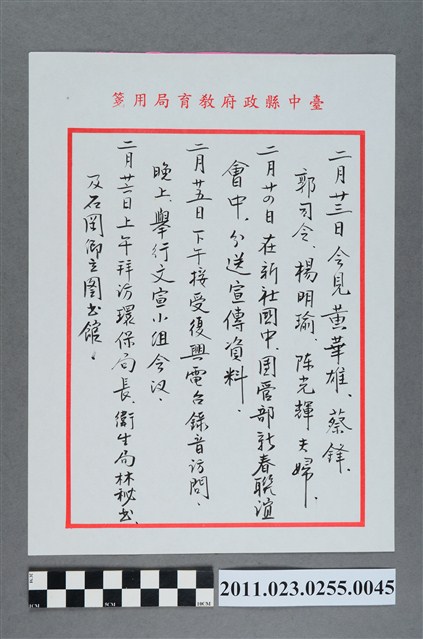 臺中縣政府教育局用箋
二月廿三日會見黃華雄、蔡鋒、
郭司令、楊明瑜、陈光輝夫婦、
二月廿四日在新社國中、團管部新春聯誼
會中、分送宣傳資料、
二月廿五日下午接受復興電台錄音訪問、
晚上、舉行文宣小組会议、
二月廿六日上午拜访環保局長、衛生局林秘书、
及石岡鄉立图书館、
2CM
1CM
5CM
10CM
2011.023.0255.0045